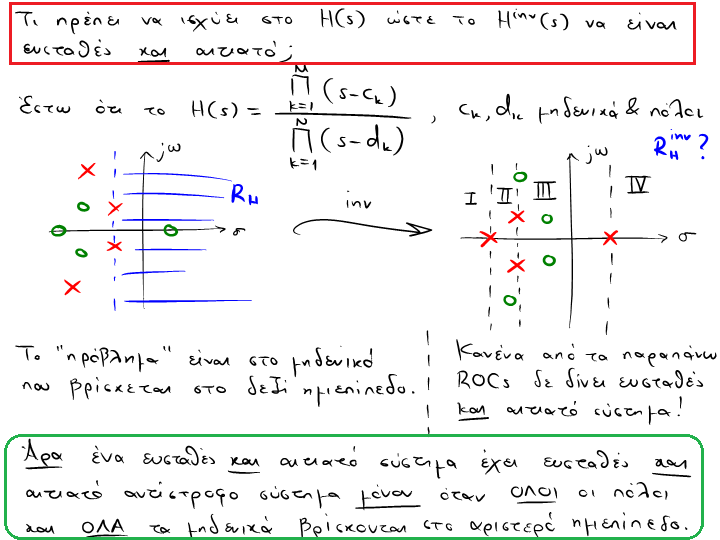 Τι πρέπει να ισχύει στο H(s) ώστε το H^{inv}(s) να είναι
ευσταθές και αιτιατό;
Έστω ότι το H(s) = \frac{\prod_{k=1}^{M} (s-c_k)}{\prod_{k=1}^{N} (s-d_k)} , c_k, d_k μηδενικά & πόλοι
jω
R_H
σ
inv
jω
R_H^{inv}?
I II III IV
σ
Το "πρόβλημα" είναι στο μηδενικό
που βρίσκεται στο δεξί ημιεπίπεδο.
Κανένα από τα παραπάνω
ROCs δε δίνει ευσταθές
και αιτιατό σύστημα!
Άρα ένα ευσταθές και αιτιατό σύστημα έχει ευσταθές και
αιτιατό αντίστροφο σύστημα μόνον όταν ΟΛΟΙ οι πόλοι
και ΟΛΑ τα μηδενικά βρίσκονται στο αριστερό ημιεπίπεδο.